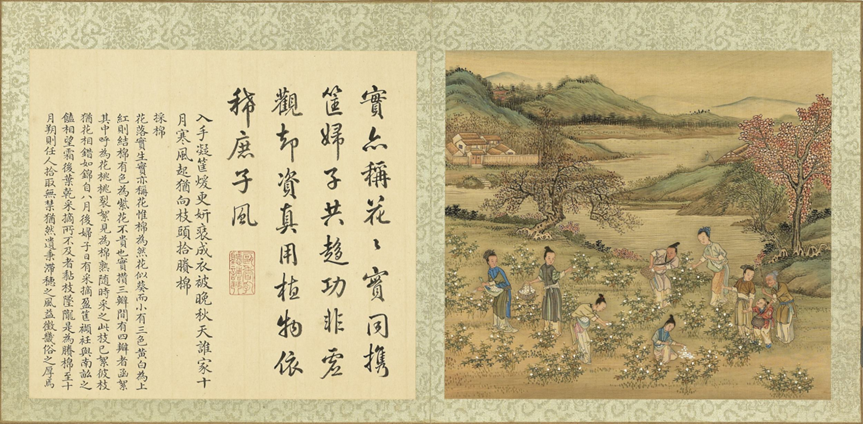 實亦稱花花實同攜
筐婦子共趨功非虛
觀却資真用植物依
稀庶子風
入手凝筐煖更妍褧成衣被晚秋天誰家十
月寒風起猶向枝頭拾賸棉
採棉
花落實生實亦稱花惟棉為然花似葵而小有三色黃白為上
紅則結棉有色為紫花不貴也實攢三瓣間有四瓣者函絮
其中呼為花桃桃裂絮見為棉熟隨時采之此枝已絮彼枝
猶花相錯如錦自八月後婦子日有采摘盈筐襭衽與南畝之
饁相望霜後葉乾采摘所不及者黏枝墜隴是為賸棉至十
月朔則任人拾取無禁猶然遺秉滯穗之風益徵畿俗之厚焉